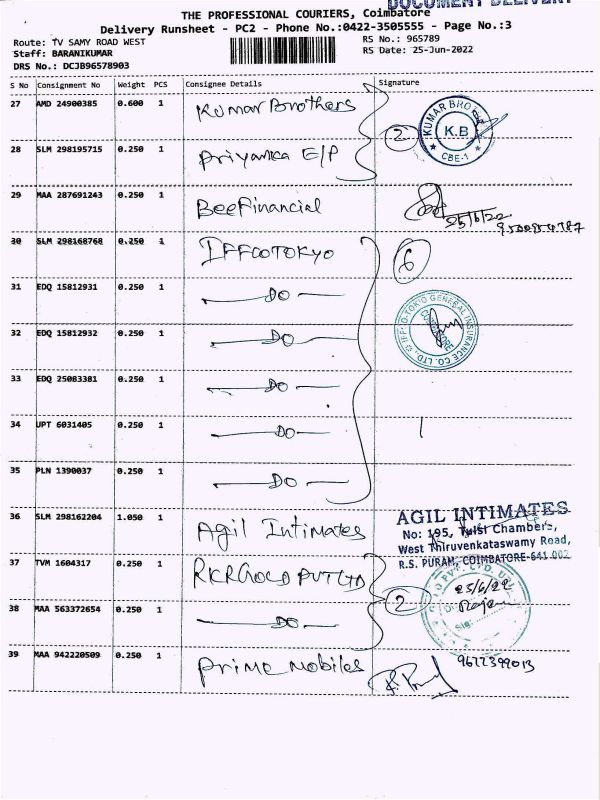 DOCUMENT DELIVERY
THE PROFESSIONAL COURIERS, Coimbatore
Delivery Runsheet - PC2 - Phone No.:0422-3505555 - Page No.:3
Route: TV SAMY ROAD WEST
RS No.: 965789
Staff: BARANIKUMAR
RS Date: 25-Jun-2022
DRS No.: DCJB96578903
S No Consignment No Weight PCS Consignee Details Signature
27 AMD 24900385 0.600 1 Kumar Brothers
KUMAR BRO
K.B
CBE-1
2
28 SLM 298195715 0.250 1 Priyanka E/P
29 MAA 287691243 0.250 1 Bee Financial
25/6/22
30 SLM 298168768 0.250 1 IFFCOTOKYO
6
31 EDQ 15812931 0.250 1 DO
IFFCO-TOKIO GENERAL INSURANCE CO. LTD.
32 EDQ 15812932 0.250 1 DO
33 EDQ 25083381 0.250 1 DO
34 UPT 6031405 0.250 1 DO
35 PLN 1390037 0.250 1 DO
36 SLM 298162204 1.050 1 Agil Intimates
AGIL INTIMATES
No: 195, Tulsi Chambers,
West Thiruvenkataswamy Road,
R.S. PURAM, COIMBATORE-641 002
37 TVM 1604317 0.250 1 RKRGOLD PVT LTD
2
25/6/22
38 MAA 563372654 0.250 1 DO
39 MAA 942220509 0.250 1 Prime mobiles